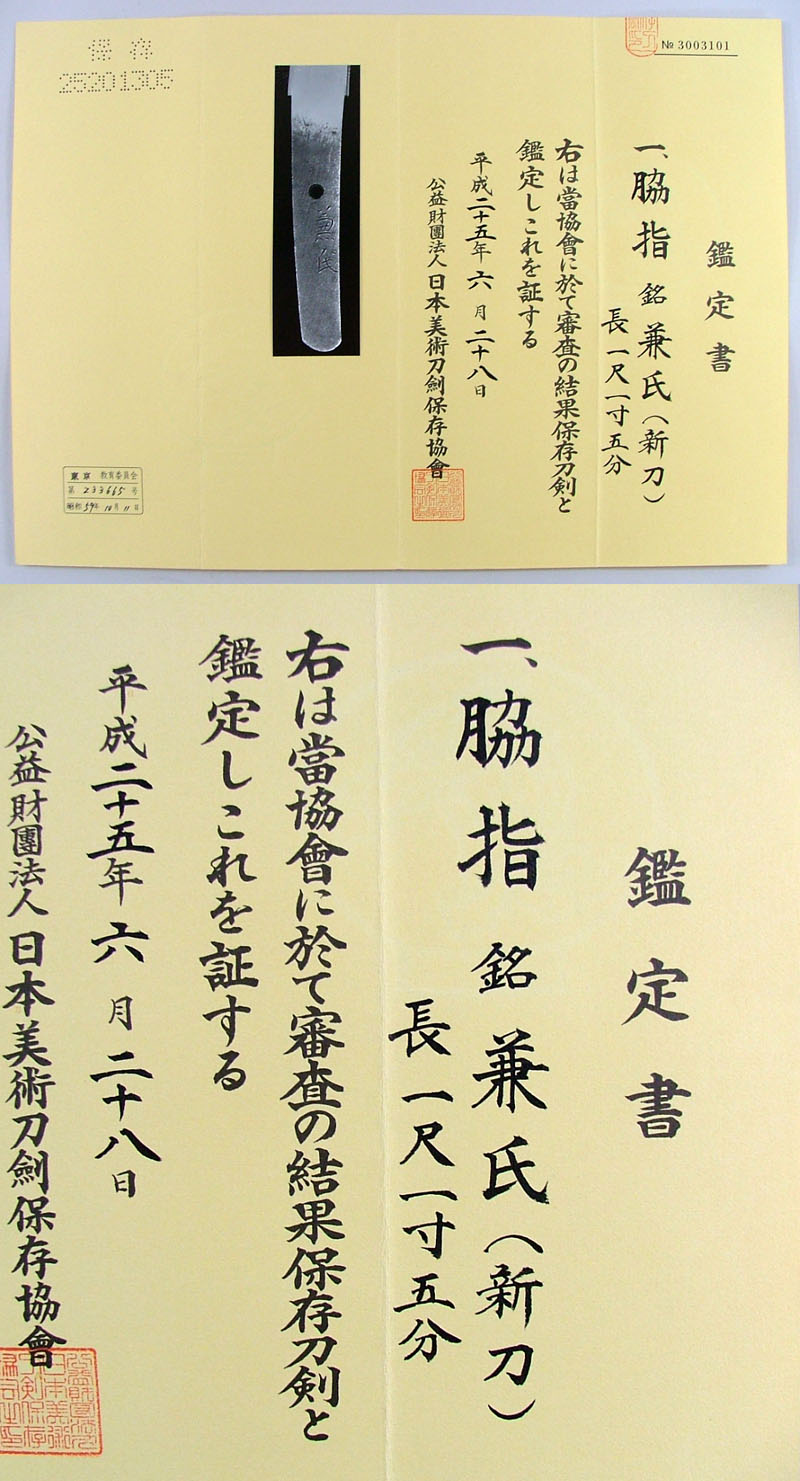 № 3003101
鑑定書
一、脇指 銘 兼氏（新刀）
長 一尺一寸五分
右は當協會に於て審査の結果保存刀剣と
鑑定しこれを証する
平成二十五年 六 月 二十八日
公益財團法人 日本美術刀劍保存協會
兼氏
保存
25201305
東京 教育委員会
第 233665 号
昭和 59年 10月 11日
鑑定書
一、脇指 銘 兼氏（新刀）
長 一尺一寸五分
右は當協會に於て審査の結果保存刀剣と
鑑定しこれを証する
平成二十五年 六 月 二十八日
公益財團法人 日本美術刀劍保存協會